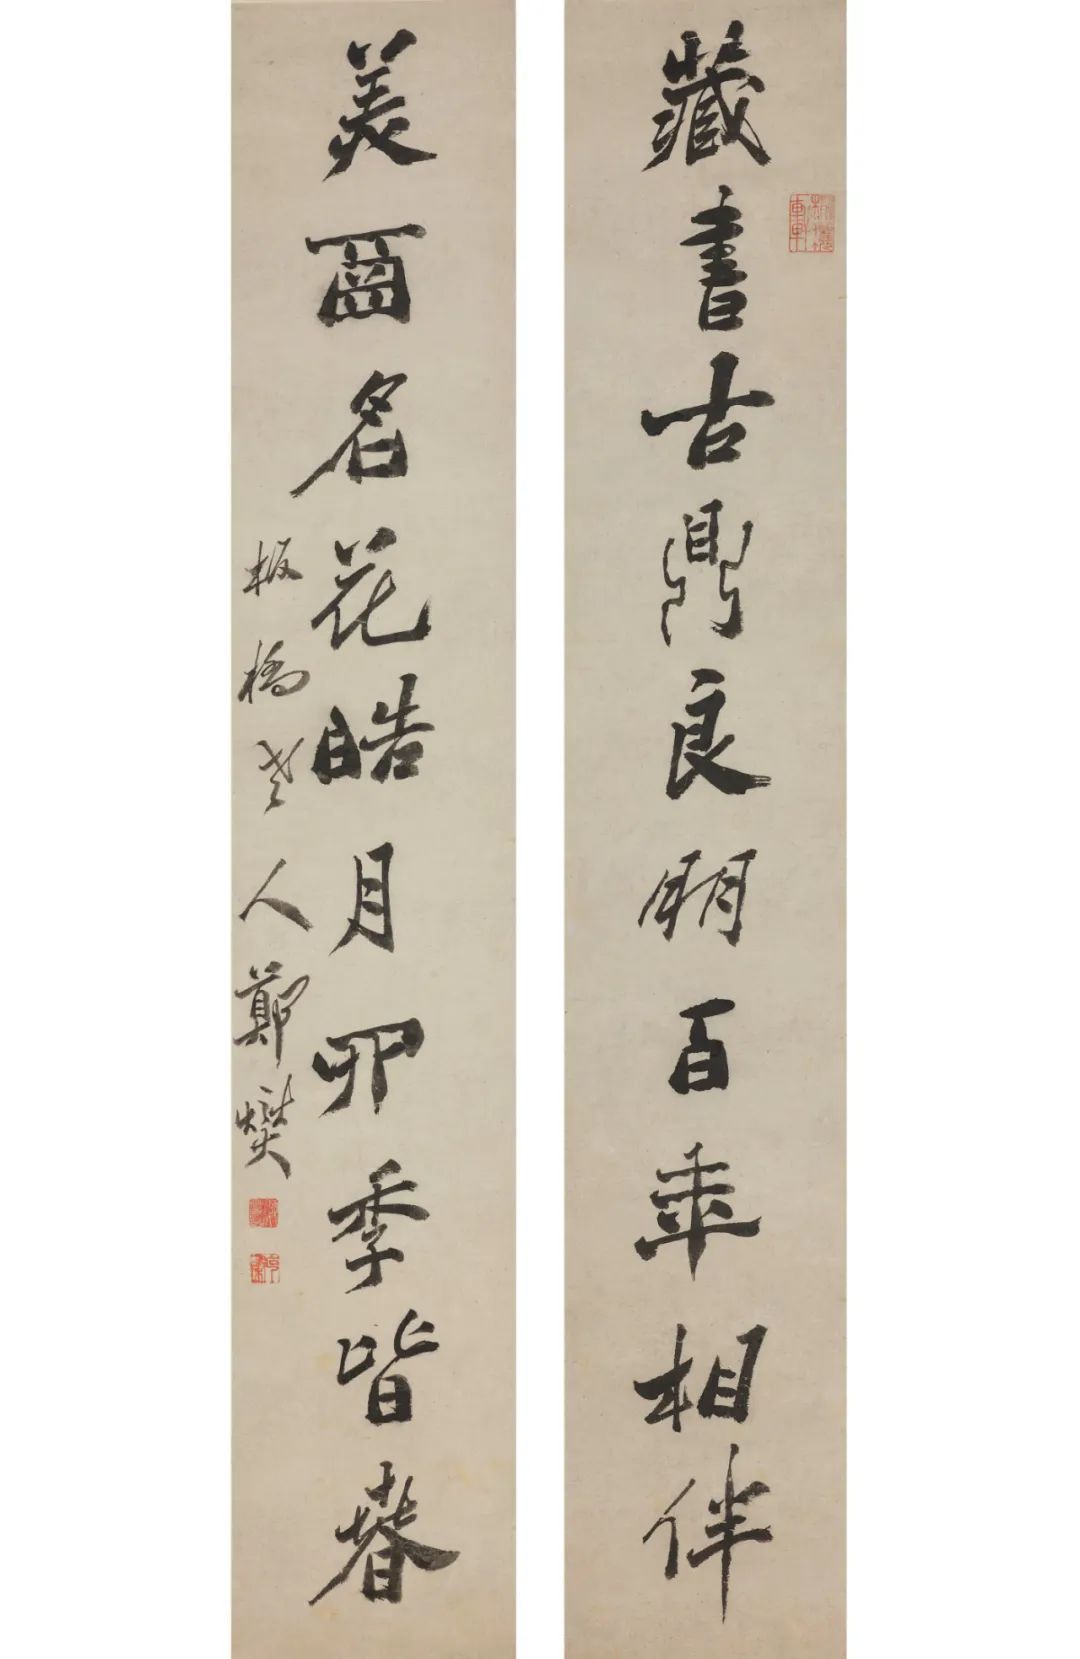 藏書古鼎良朋百年相伴
美画名花皓月四季皆春
板橋老人鄭燮